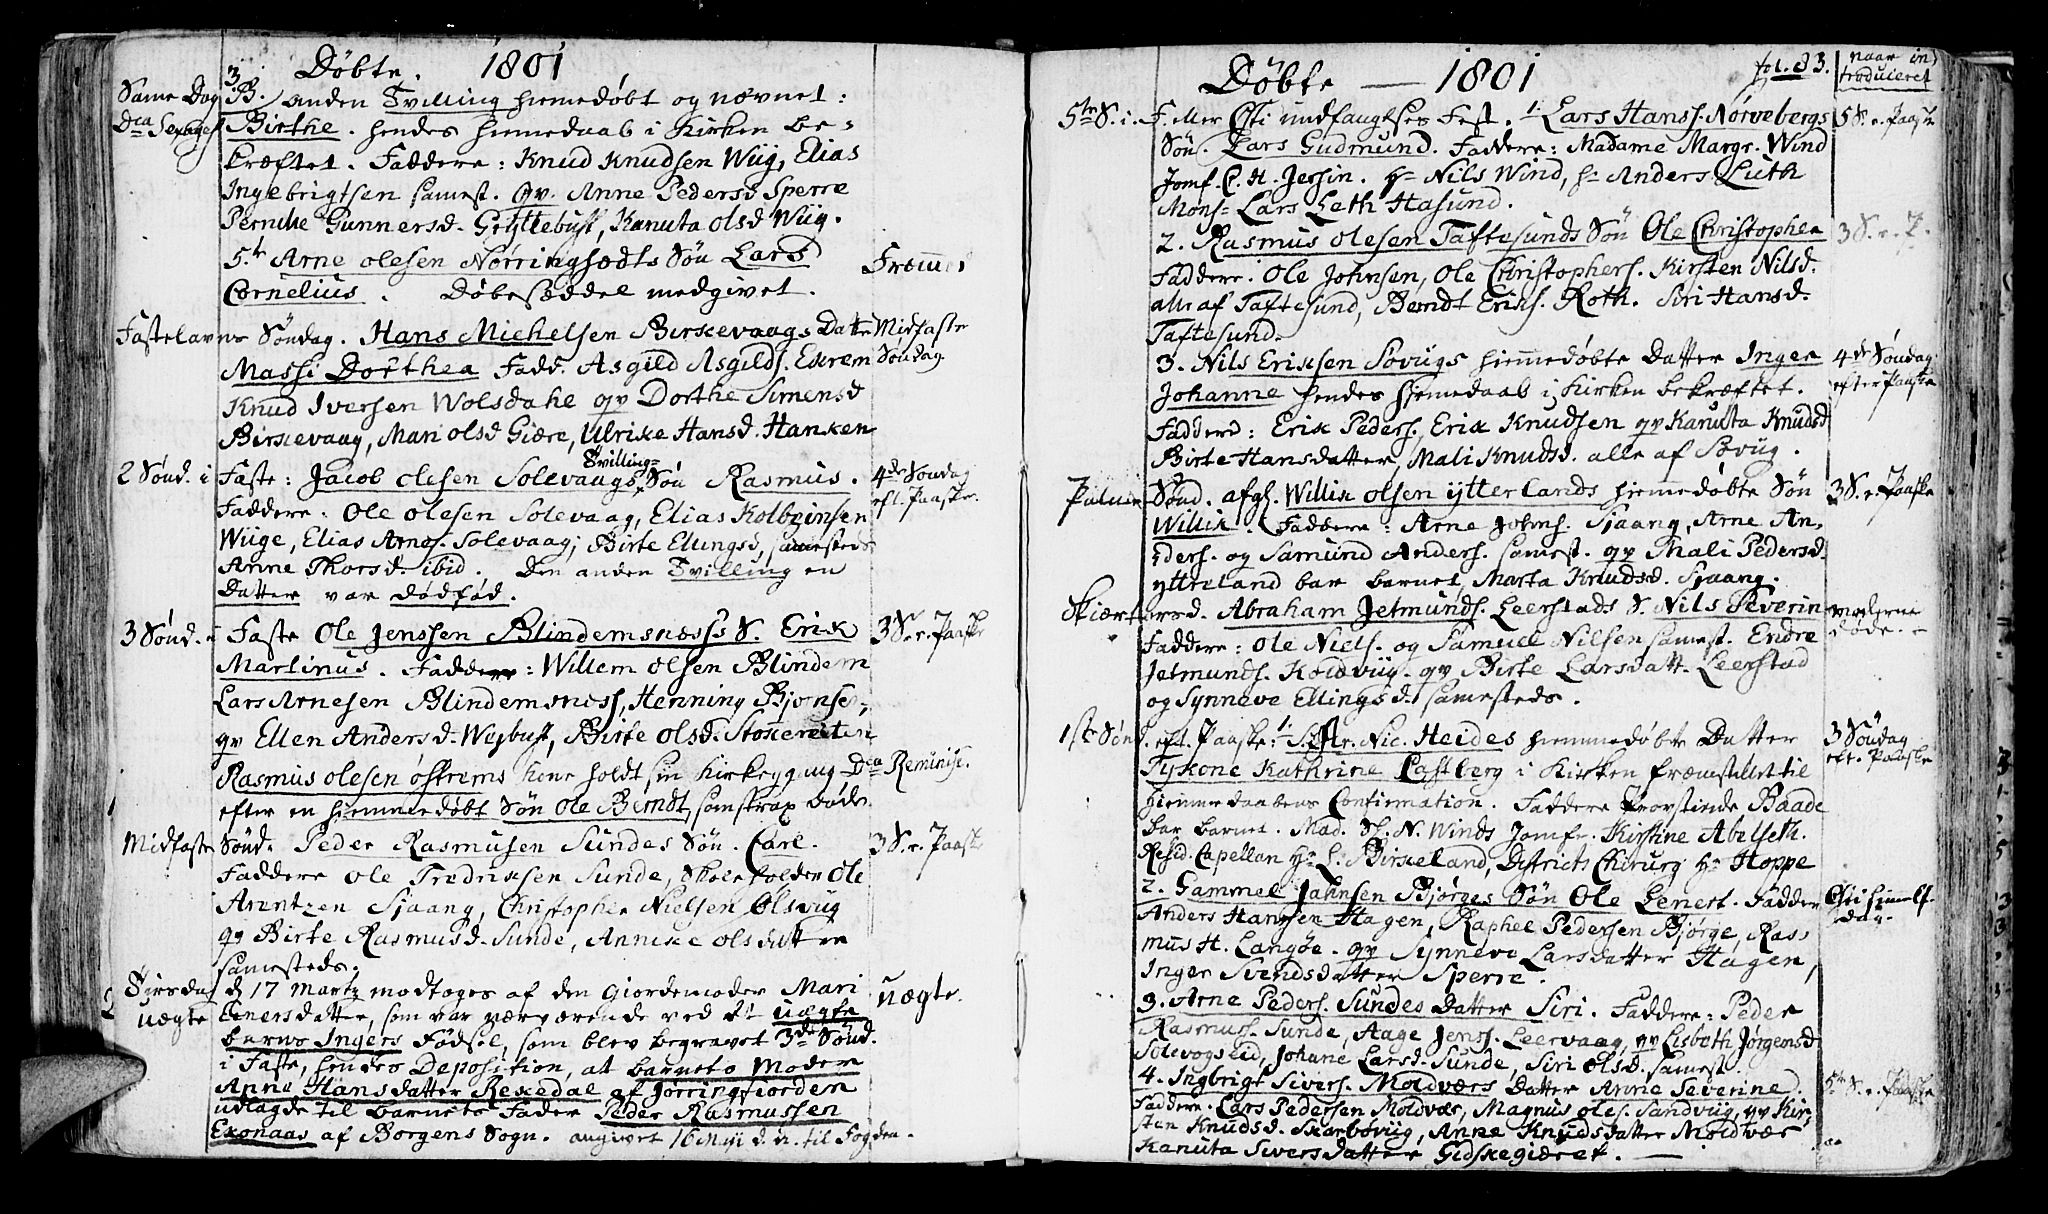 Døbte. 1801
Same Dag 3. B. anden Tvilling hiemedøbt og nævnet:
Dca Sexages. Birthe. hendes hiemedaab i Kirken be-
kræftet. Faddere: Knud Knudsen Wiig, Elias
Ingebrigtsen samest. qv. Anne Pedersd Sperre
Pernille Gunnersd. Gryttebust, Kanuta Olsd Wiig.
5. Arne Olesen Nørringsædts Søn Lars
Cornelius. Døbeseddel medgivet.
Fastelavns Søndag. Hans Michelsen Birkevaags Datter Midfaste
Massi Dorthea Fadd. Asgild Asgilds. Exrem Søndag
Knud Iversen Wolsdahe qv Dorthe Simensd
Birkevaag, Mari olsd Giære, Ulrike Hansd. Hanken
Tvilling
2 Sønd. i Faste: Jacob Olesen Solevaags Søn Rasmus. 4de Søndag
Faddere: Ole Olesen Solevaag, Elias Kolbeinsen eft. Paaske.
Wiige, Elias Arnes. Solevaag; Birte Ellingsd, samesteds
Anne Thorsd. ibid. Den anden Tvilling en
Datter var dødfød.
3 Sønd. i Faste Ole Jenssen Blindemsnæss S. Erik 3 S. e. Paaske
Martinus. Faddere: Willem Olsen Blindem
Lars Arnesen Blindemsness, Henning Bjonsen,
qv Ellen Andersd. Wejbust, Birte Olsd. Stokereiten
Rasmus Olesen Østrems Kone holdt sin Kirkegang Dca Reminisc.
efter en hiemmedøbt Søn Ole Berndt, som strax døde
Midfaste Sønd. Peder Rasmusen Sundes Søn. Carl. 3 S. e. Paaske
Faddere Ole Fredriksen Sunde, Skoleholder Ole
Arentzen Sjaang, Christopher Nielsen Olsvug
qv Birte Rasmusd. Sunde, Anneke Olsdatter
samesteds.
Tirsdag d 17 Martz modtoges af den Giordemoder Mari uægte.
uægte Einersdatter, som var nærværende ved det uægte
barns Ingers Fødsel, som blev begravet 3de Sønd.
i Faste, hendes Deposition, at barnets Moder
Anne Hansdatter Rekedal af Jørringfiorden
udlagde til barnets Fader Peder Rasmussen
Exonaas af Borgens Sogn. angivet 16 Maii d. A. til Fogden.
Døbte — 1801 fol. 83. naar in
troduceret
5te S. i. F. eller Xsti undfangelses Fest. 1. Lars Hanss. Nørvebergs 5 S. e. Paaske
Søn. Lars Gudmund. Faddere: Madame Margr. Wind
Jomf. C. H. Jersin. Hr Nils Wind, Hr Anders Luth
Mons. Lars Leth Hasund.
2. Rasmus Olesen Taftesunds Søn Ole Christopher 3 S. e. P.
Faddere. Ole Johnsen, Ole Christophers. Kirsten Nilsd.
alle af Taftesund, Berndt Eriks. Roth. Siri Hansd.
Taftesund.
3. Nils Eriksen Søvugs hiemmedøbte Datter Inger 4de Søndag
Johanne hendes hiemedaab i Kirken bekræftet. efter Paaske
Faddere: Erik Peders. Erik Knudsen qv Kanuta Knudsd
Birte Hansdatter, Mali Knudsd. alle af Søvug.
Palme Sønd. afgl. Willik Olsen Ytterlands hiemmedøbte Søn 3 S. e. Paaske
Willik. Faddere: Arne Johns. Sjaang, Arne An-
ders. og Samund Anders. samest. qv Mali Pedersd.
Ytterland bar barnet, Marta Knudsd. Sjaang.
Skiærtorsd. Abraham Jetmunds. Leerstads S. Nils Severin moderne
Faddere: Ole Niels. og Samuel Nilsen samest. Endre døde.
Jetmunds. Koldviig. qv Birte Larsdatt. Leerstad
og Synneve Ellingsd. samesteds.
1ste Sønd. eft. Paaske: 1. S. Hr. Nic. Heides hiemmedøbte Datter 3 Søndag
Tykone Kathrine Castberg i Kirken fremstillet til eft. Paaske
hiemmedaabens Confirmation. Faddere Provstinde Baade
bar barnet. Mad. Sl. N. Winds Jomfr. Kirstine Abelseth.
Resid. Capellan Hr L. Birkeland, Districts Chirurg Hr Hoppe
2. Gammel Jahnsen Bjørges Søn Ole Lenert. Fadder Xsti himelf.
Anders Hansen Hagen, Raphel Pedersen Bjørge, Ras- dag.
mus H. Langøe. qv Synneve Larsdatter Hagen,
Inger Svendsdatter Sperre.
3. Arne Peders. Sundes Datter Siri. Faddere: Peder
Rasmuss. Sunde, Aage Jenss. Leervaag, qv Lisbeth Jørgensd
Solevogseid, Johane Larsd. Sunde, Siri Olsd. samest.
4. Ingbrigt Sivers. Moldværs Datter Anne Severine. 5te S. e. Paaske
Faddere. Lars Pedersen Moldvær, Magnus Oles. Sandviig, qv Kir-
sten Knudsd. Skarbøvig, Anne Knudsdatter Moldvær
Kanuta Siversdatter Gidskegiæret. —